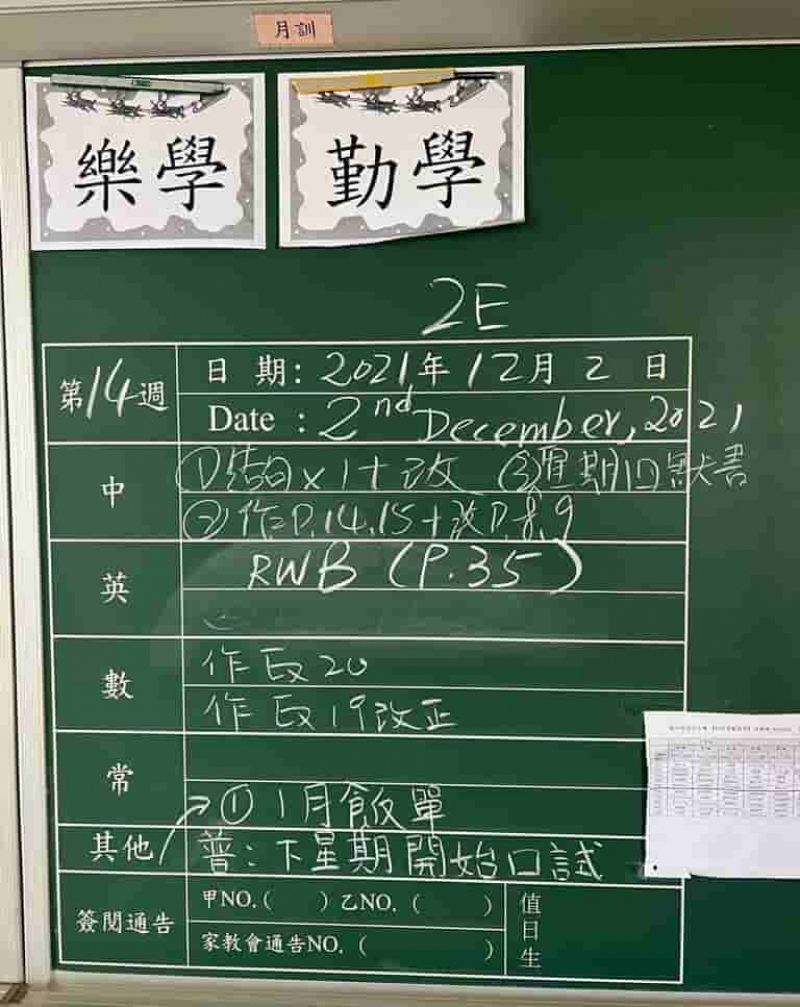 月訓
樂學
勤學
2E
第14週
日期: 2021年12月2日
Date : 2nd December, 2021
中
① 結句x1+改 ③星期四默書
② 作P.14.15+改P.8,9
英
RWB (P.35)
數
作 20
作 19改正
常
① 1月飯單
其他
普: 下星期開始口試
簽閱通告
甲NO.( ) 乙NO. ( )
家教會通告NO. ( )
值日生